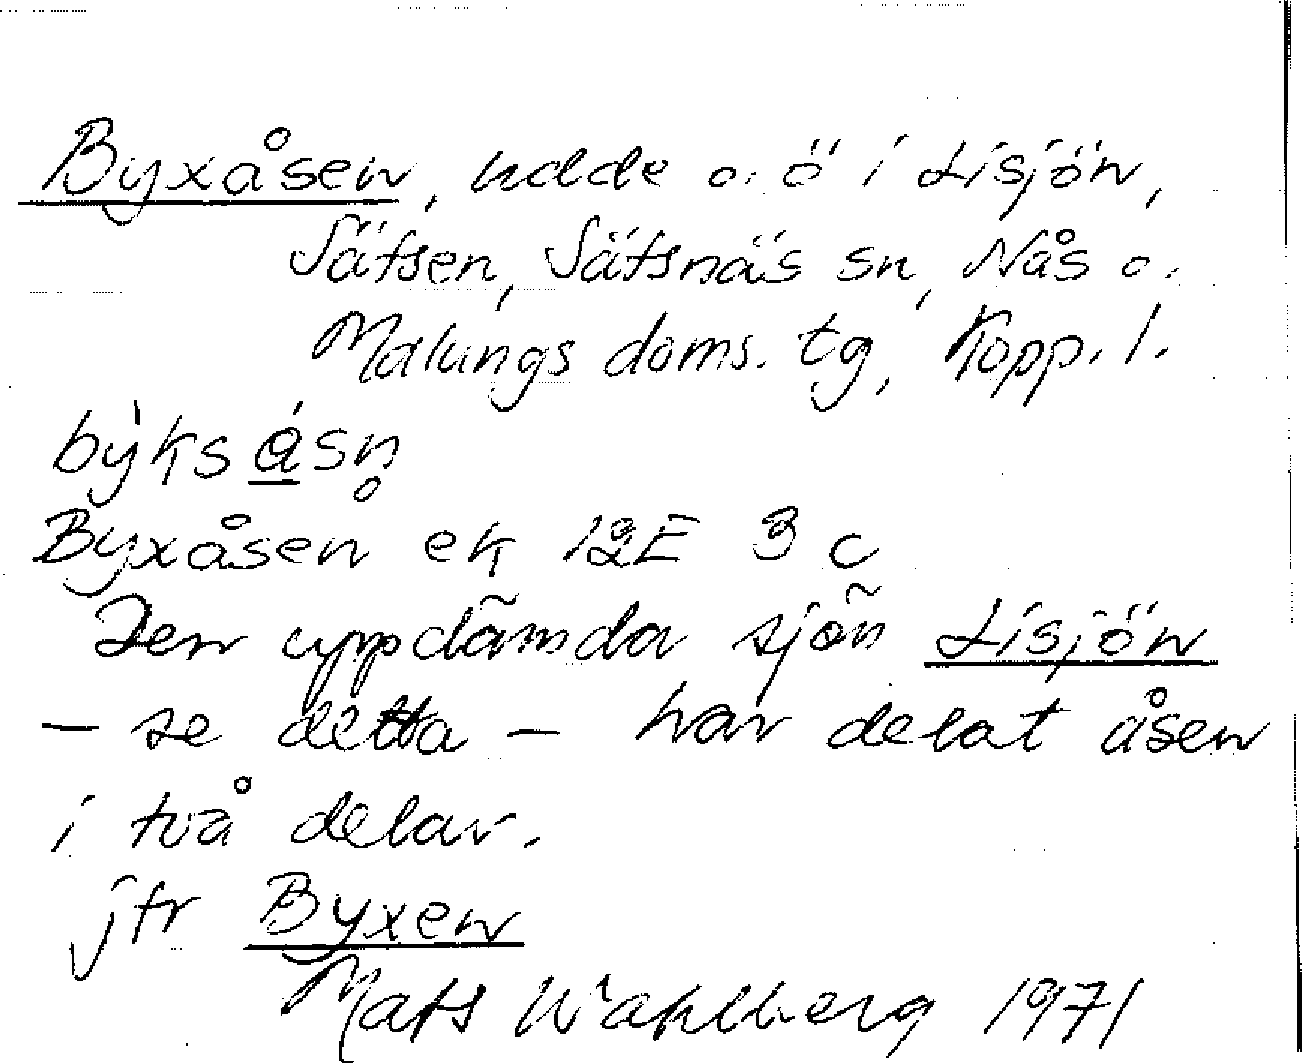 Byxåsen, udde o. ö i Lisjön,
Sätsen, Säfsnäs sn, Nås o.
Malungs doms. tg, Kopp. l.
Byxåsen ek 12E 3 c
Den uppdämda sjön Lisjön
– se detta – har delat åsen
i två delar.
jfr Byxen
Mats Wahlberg 1971